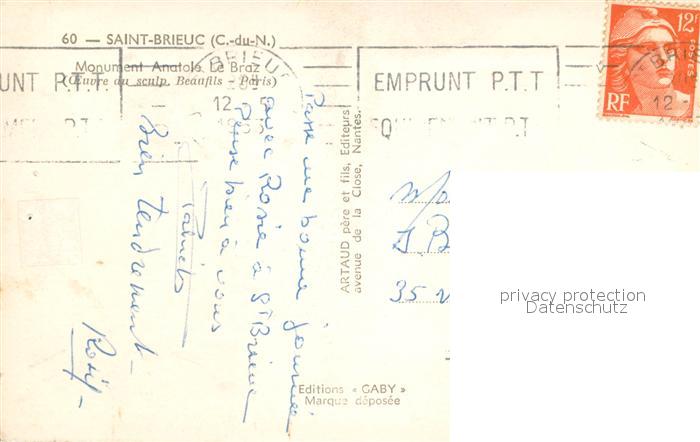 60 — SAINT-BRIEUC (C.-du-N.)
Monument Anatole Le Braz
(Œuvre du sculp. Beaufils - Paris)
BRIEUC
12
EMPRUNT P.T.T
UNT P.
12F
POSTES
RF
BRI
12
Passé une bonne journée
avec Rosie à St Brieuc
Pense bien à vous
Bien tendrement -
ARTAUD père et fils, Editeurs
avenue de la Close, Nantes.
35
privacy protection
Datenschutz
Editions « GABY »
Marque déposée